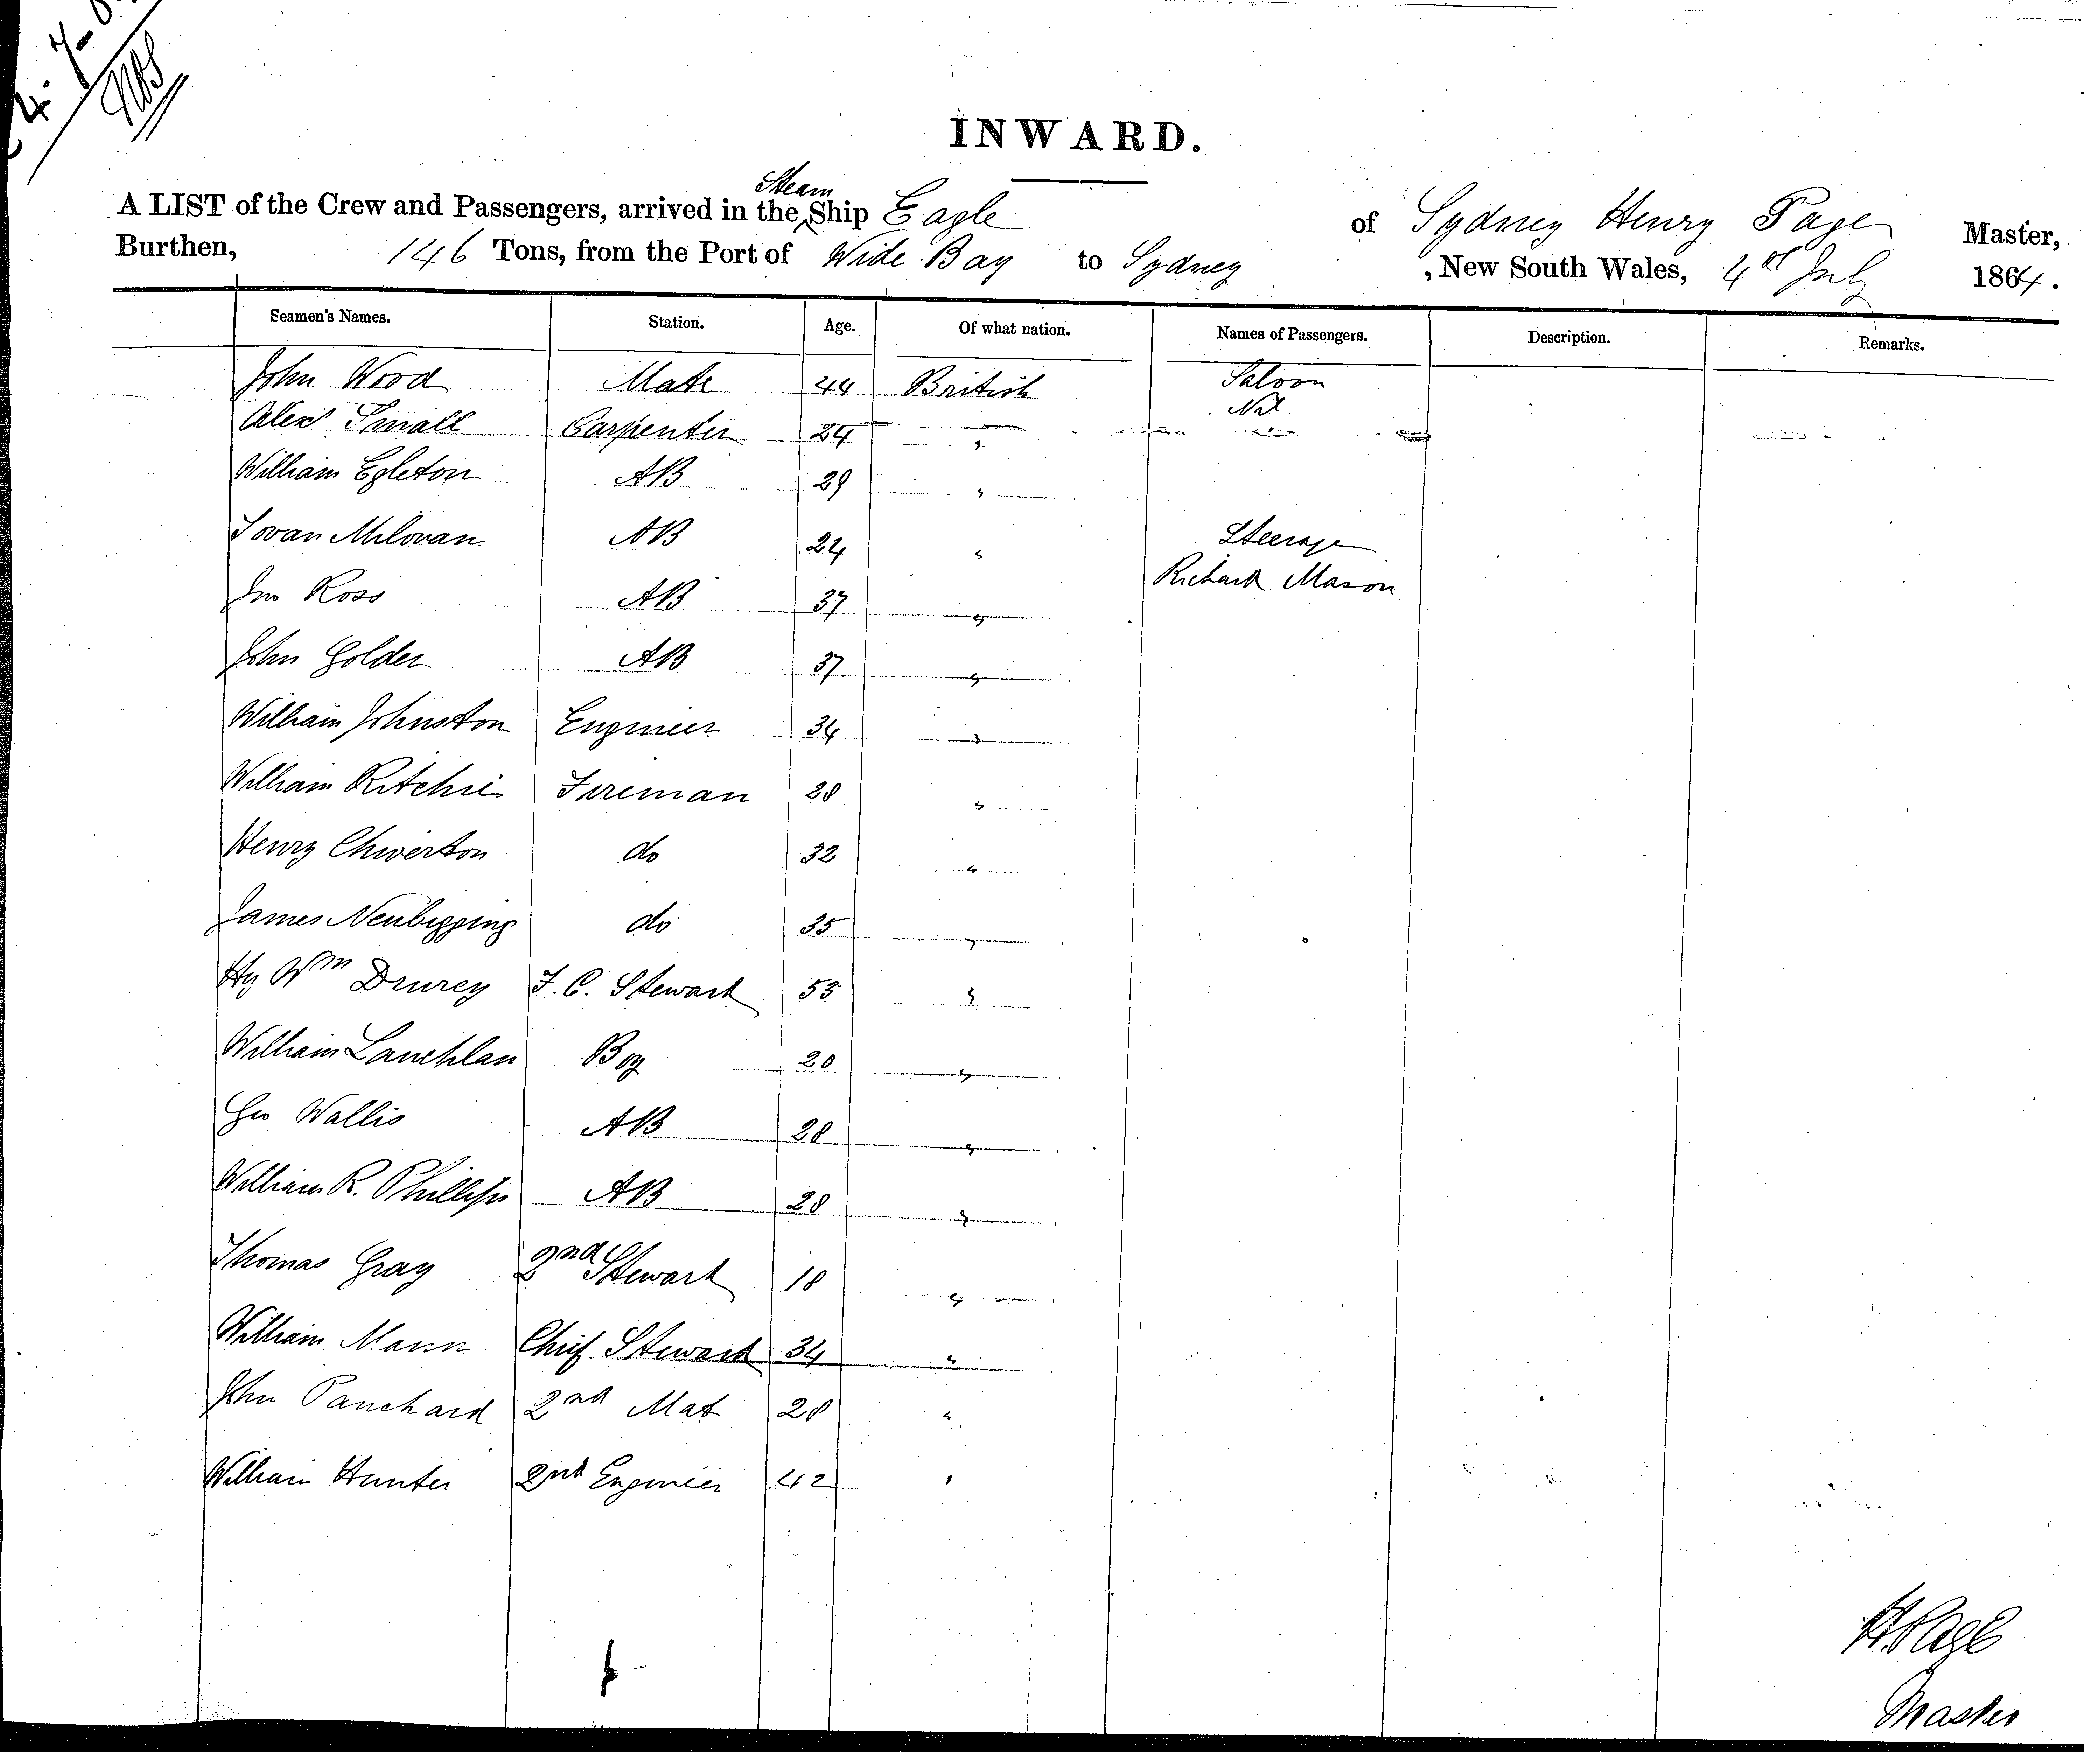 4.7.
INWARD.
A LIST of the Crew and Passengers, arrived in the Steam Ship Eagle of Sydney Henry Page Master,
Burthen, 146 Tons, from the Port of Wide Bay to Sydney , New South Wales, 4th July 1864.
Seamen's Names. Station. Age. Of what nation. Names of Passengers. Description. Remarks.
John Wood Mate 44 British Saloon
Nil
Alexr Small Carpenter 24 "
William Egleton AB 29 "
Jovan Milovan AB 24 " Steerage
Richard Mason
Jno Ross AB 37 "
John Golder AB 37 "
William Johnston Engineer 34 "
William Ritchie Fireman 28 "
Henry Chiverton do 32 "
James Newbigging do 35 "
Hy Wm Drurey F. C. Steward 53 "
William Lauchlan Boy 20 "
Geo Wallis AB 28 "
William R. Phillips AB 28 "
Thomas Gray 2nd Steward 18 "
William Mann Chief Steward 34 "
John Panchard 2nd Mat 28 "
William Hunter 2nd Engineer 42 "
H Page
Master